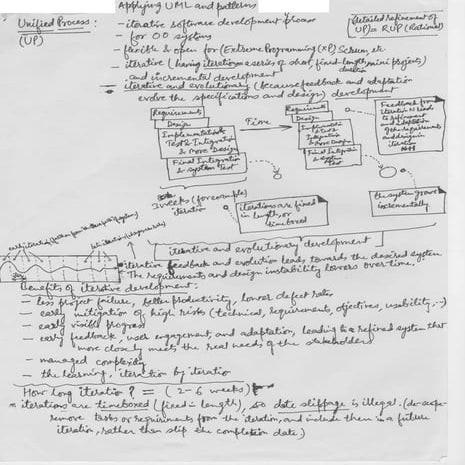 Applying UML and patterns
Unified Process :
(UP)
- iterative software development process
- for OO systems
- flexible & open for (Extreme Programming (XP) Scrum, etc.
- iterative (having iterations = series of short, fixed-length mini projects)
duration
and incremental development
- iterative and evolutionary (because feedback and adaptation
evolve the specifications and design) development
[detailed refinement of
UP] = RUP (Rational)
Requirements
Design
Implementation &
Test & Integration
& More Design
Final Integration
& system test
Time
Requirements
Design
Implementation
& Test &
Integration
& More Design
Final Integration
& system
Test
Feedback from
iteration N leads
to refinement
and adaptation
of the requirements
and design in
iteration
N+1
3 weeks (for example)
iteration
iterations are fixed
in length, or
timeboxed
the system grows
incrementally
[iterative and evolutionary development]
iterative feedback and evolution leads towards the desired system.
The requirements and design instability lowers over time."
Benefits of iterative development:
- less project failure, better productivity, lower defect rates
- early mitigation of high risks (technical, requirements, objectives, usability, ...)
- early visible progress
- early feedback, user engagement, and adaptation, leading to a refined system that
more closely meets the real needs of the stakeholders
- managed complexity
- the learning, iteration by iteration
How long iteration? = (2-6 weeks)
= iterations are timeboxed (fixed in length), so date slippage is illegal. (de-scope-
remove tasks or requirements from the iteration, and include them in a future
iteration, rather than slip the completion date)